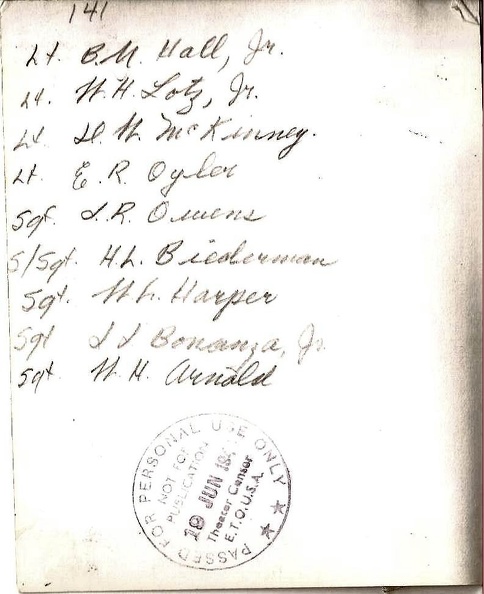 141
Lt. B.M. Hall, Jr.
Lt. W.H. Lotz, Jr.
Lt W. McKinney.
Lt. E. R. Oyler
Sgt. R. Owens
S/Sgt. H.L. Biederman
Sgt. W.L. Harper
Sgt Bonanza, Jr.
Sgt. W. H. Arnold
PASSED FOR PERSONAL USE ONLY
NOT FOR
PUBLICATION
19 JUN 194
Theater Censor
E.T.O.U.S.A.